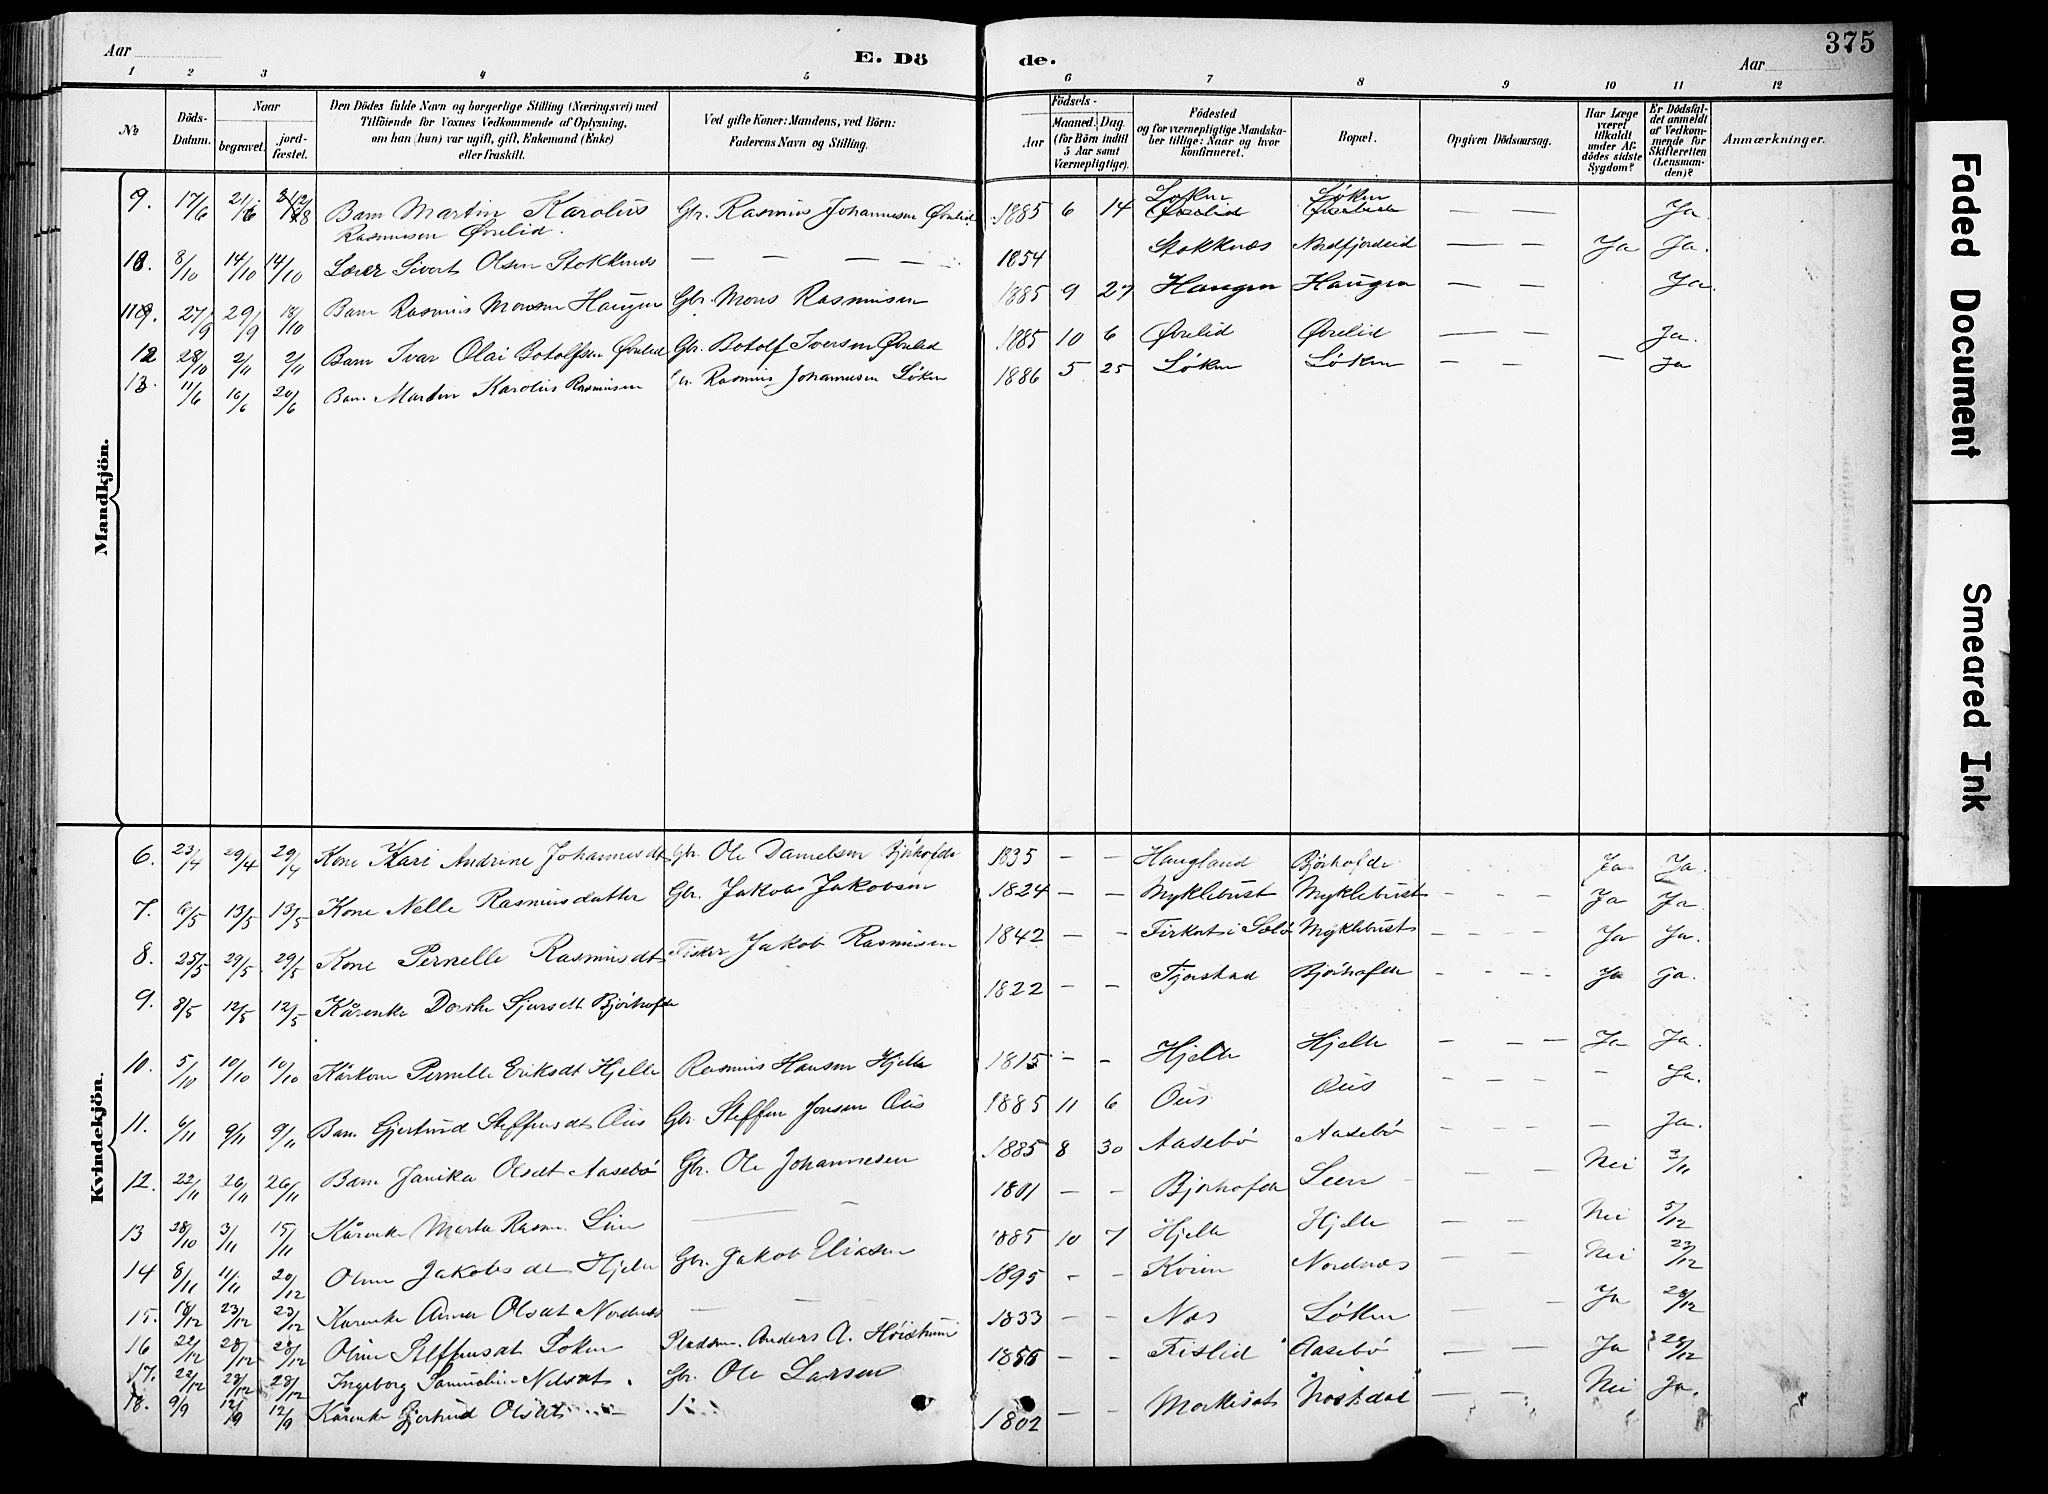 Aar
E. Dö
de.
Aar
375
1 2 3 4 5 6 7 8 9 10 11 12
№
Döds-Datum.
Naar
begravet.
jord-fæstet.
Den Dödes fulde Navn og borgerlige Stilling (Næringsvei) med
Tilföiende for Voxnes Vedkommende af Oplysning,
om han (hun) var ugift, gift, Enkemand (Enke)
eller fraskilt.
Ved gifte Koner: Mandens, ved Börn:
Faderens Navn og Stilling.
Födsels-
Aar
Maaned.
Dag.
(for Börn indtil
5 Aar samt
Værnepligtige).
Födested
og for værnepligtige Mandska-
ber tillige: Naar og hvor
konfirmeret.
Bopæl.
Opgiven Dödsaarsag.
Har Læge
været
tilkaldt
under Af-
dödes sidste
Sygdom?
Er Dödsfal-
det anmeldt
af Vedkom-
mende for
Skifteretten
(Lensman-
den)?
Anmærkninger.
Mandkjön.
9. 17/6 21/6 Barn Martin Karolus Gbr. Rasmus Johannesen Øvrelid 1885 6 14 Løken Løken — — Ja.
Rasmusen Øvrelid.
10. 8/10 14/10 14/10 Lærer Sivert Olsen Stokknes — — — — 1854 Stokknæs Nordfjordeid — — Ja Ja.
11. 27/9 29/9 18/10 Barn Rasmus Monsen Haugen Gbr. Mons Rasmusen 1885 9 27 Haugen Haugen — — Ja.
12 28/10 2/11 2/11 Barn Ivar Olai Botolfsen Øvrelid Gbr. Botolf Iversen Øvrelid 1885 10 6 Øvrelid Øvrelid — — Ja.
13. 11/6 16/6 20/6 Barn Martin Karolus Rasmusen Gbr. Rasmus Johannesen Løken 1886 5 25 Løken Løken — — — Ja
Kvindekjön.
6. 23/4 29/4 29/4 Kone Kari Andrine Johannesdt Gbr. Ole Danielsen Bjørhofde 1835 — — Haugland Bjørhofde Ja. Ja.
7. 6/5 13/5 13/5 Kone Nelle Rasmusdatter Gbr. Jakob Jakobsen 1824 — — Myklebust Myklebust — — — Ja Ja.
8. 25/5 29/5 29/5 Kone Pernelle Rasmusdt Fisker Jakob Rasmusen 1842 — — i Selø Myklebust — — — Ja Ja.
9. 8/5 12/5 12/5 Kårenke Dorthe Sjursdt Bjørhofde 1822 — — Fjorstad Bjørhofde — — — Ja ja.
10. 5/10 10/10 10/10 Kårkone Pernelle Eriksdt Hjelle Rasmus Hansen Hjelle 1815 — — Hjelle Hjelle — — — Ja Ja.
11. 6/11 9/11 9/11 Barn Gjertrud Steffensdt Øus Gbr. Steffen Jonsen Øus 1885 11 6 Øus Øus — — — — Ja.
12. 22/11 26/11 26/11 Barn Janika Olsdt Aasebø Gbr. Ole Johannesen 1885 8 30 Aasebø Aasebø — — — — Ja.
13 28/10 3/11 15/11 Kårenke Marta Rasm. — 1801 — — Bjørhofde Seen — — Nei 3/11
14 8/11 11/11 20/12 Oline Jakobsdt Hjelle Gbr. Jakob Eliasen 1885 10 7 Hjelle Hjelle — — Nei 5/12
15. 18/12 23/12 23/12 Kårenke Anna Olsdt Nordnæs — — — 1895 — — Nordnæs — — Nei 23/12
16 22/12 28/12 28/12 Oline Steffensdt Løken Pladsm. Anders A. 1833 — — Næs Løken — Ja 28/12
17. 22/12 28/12 28/12 Ingeborg Nilsdt. Gbr. Ole Larsen 1855 — — Aasebø — — Ja 28/12
18. 9/9 12/9 12/9 Kårenke Gjertrud Olsdt 1802 — — — — Nei Ja.
Faded Document
Smeared Ink